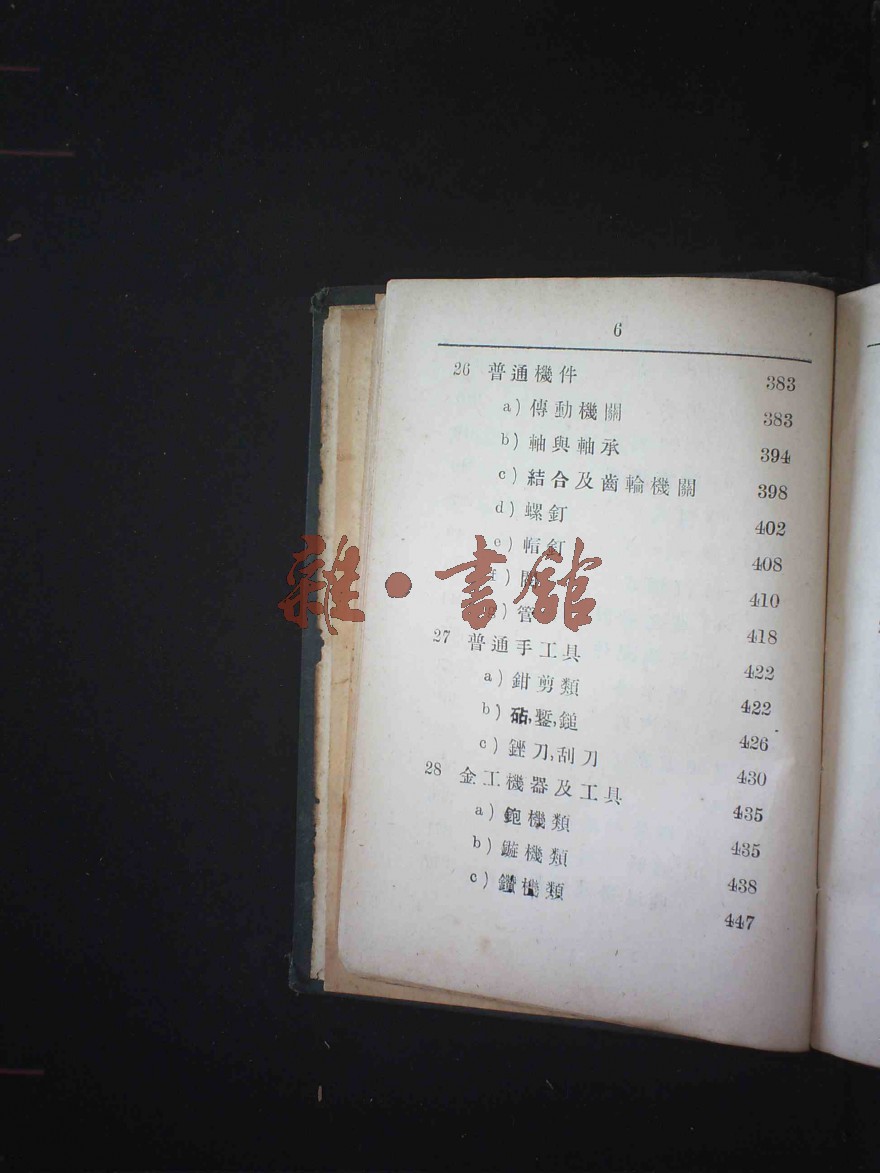 6
26 普通機件 383
a) 傳動機關 383
b) 軸與軸承 394
c) 結合及齒輪機關 398
d) 螺釘 402
e) 帽釘 408
f) 410
g) 管 418
27 普通手工具 422
a) 鉗剪類 422
b) 砧,鏨,鎚 426
c) 銼刀,刮刀 430
28 金工機器及工具 435
a) 鉋機類 435
b) 鏇機類 438
c) 鑽機類 447
雜·書館